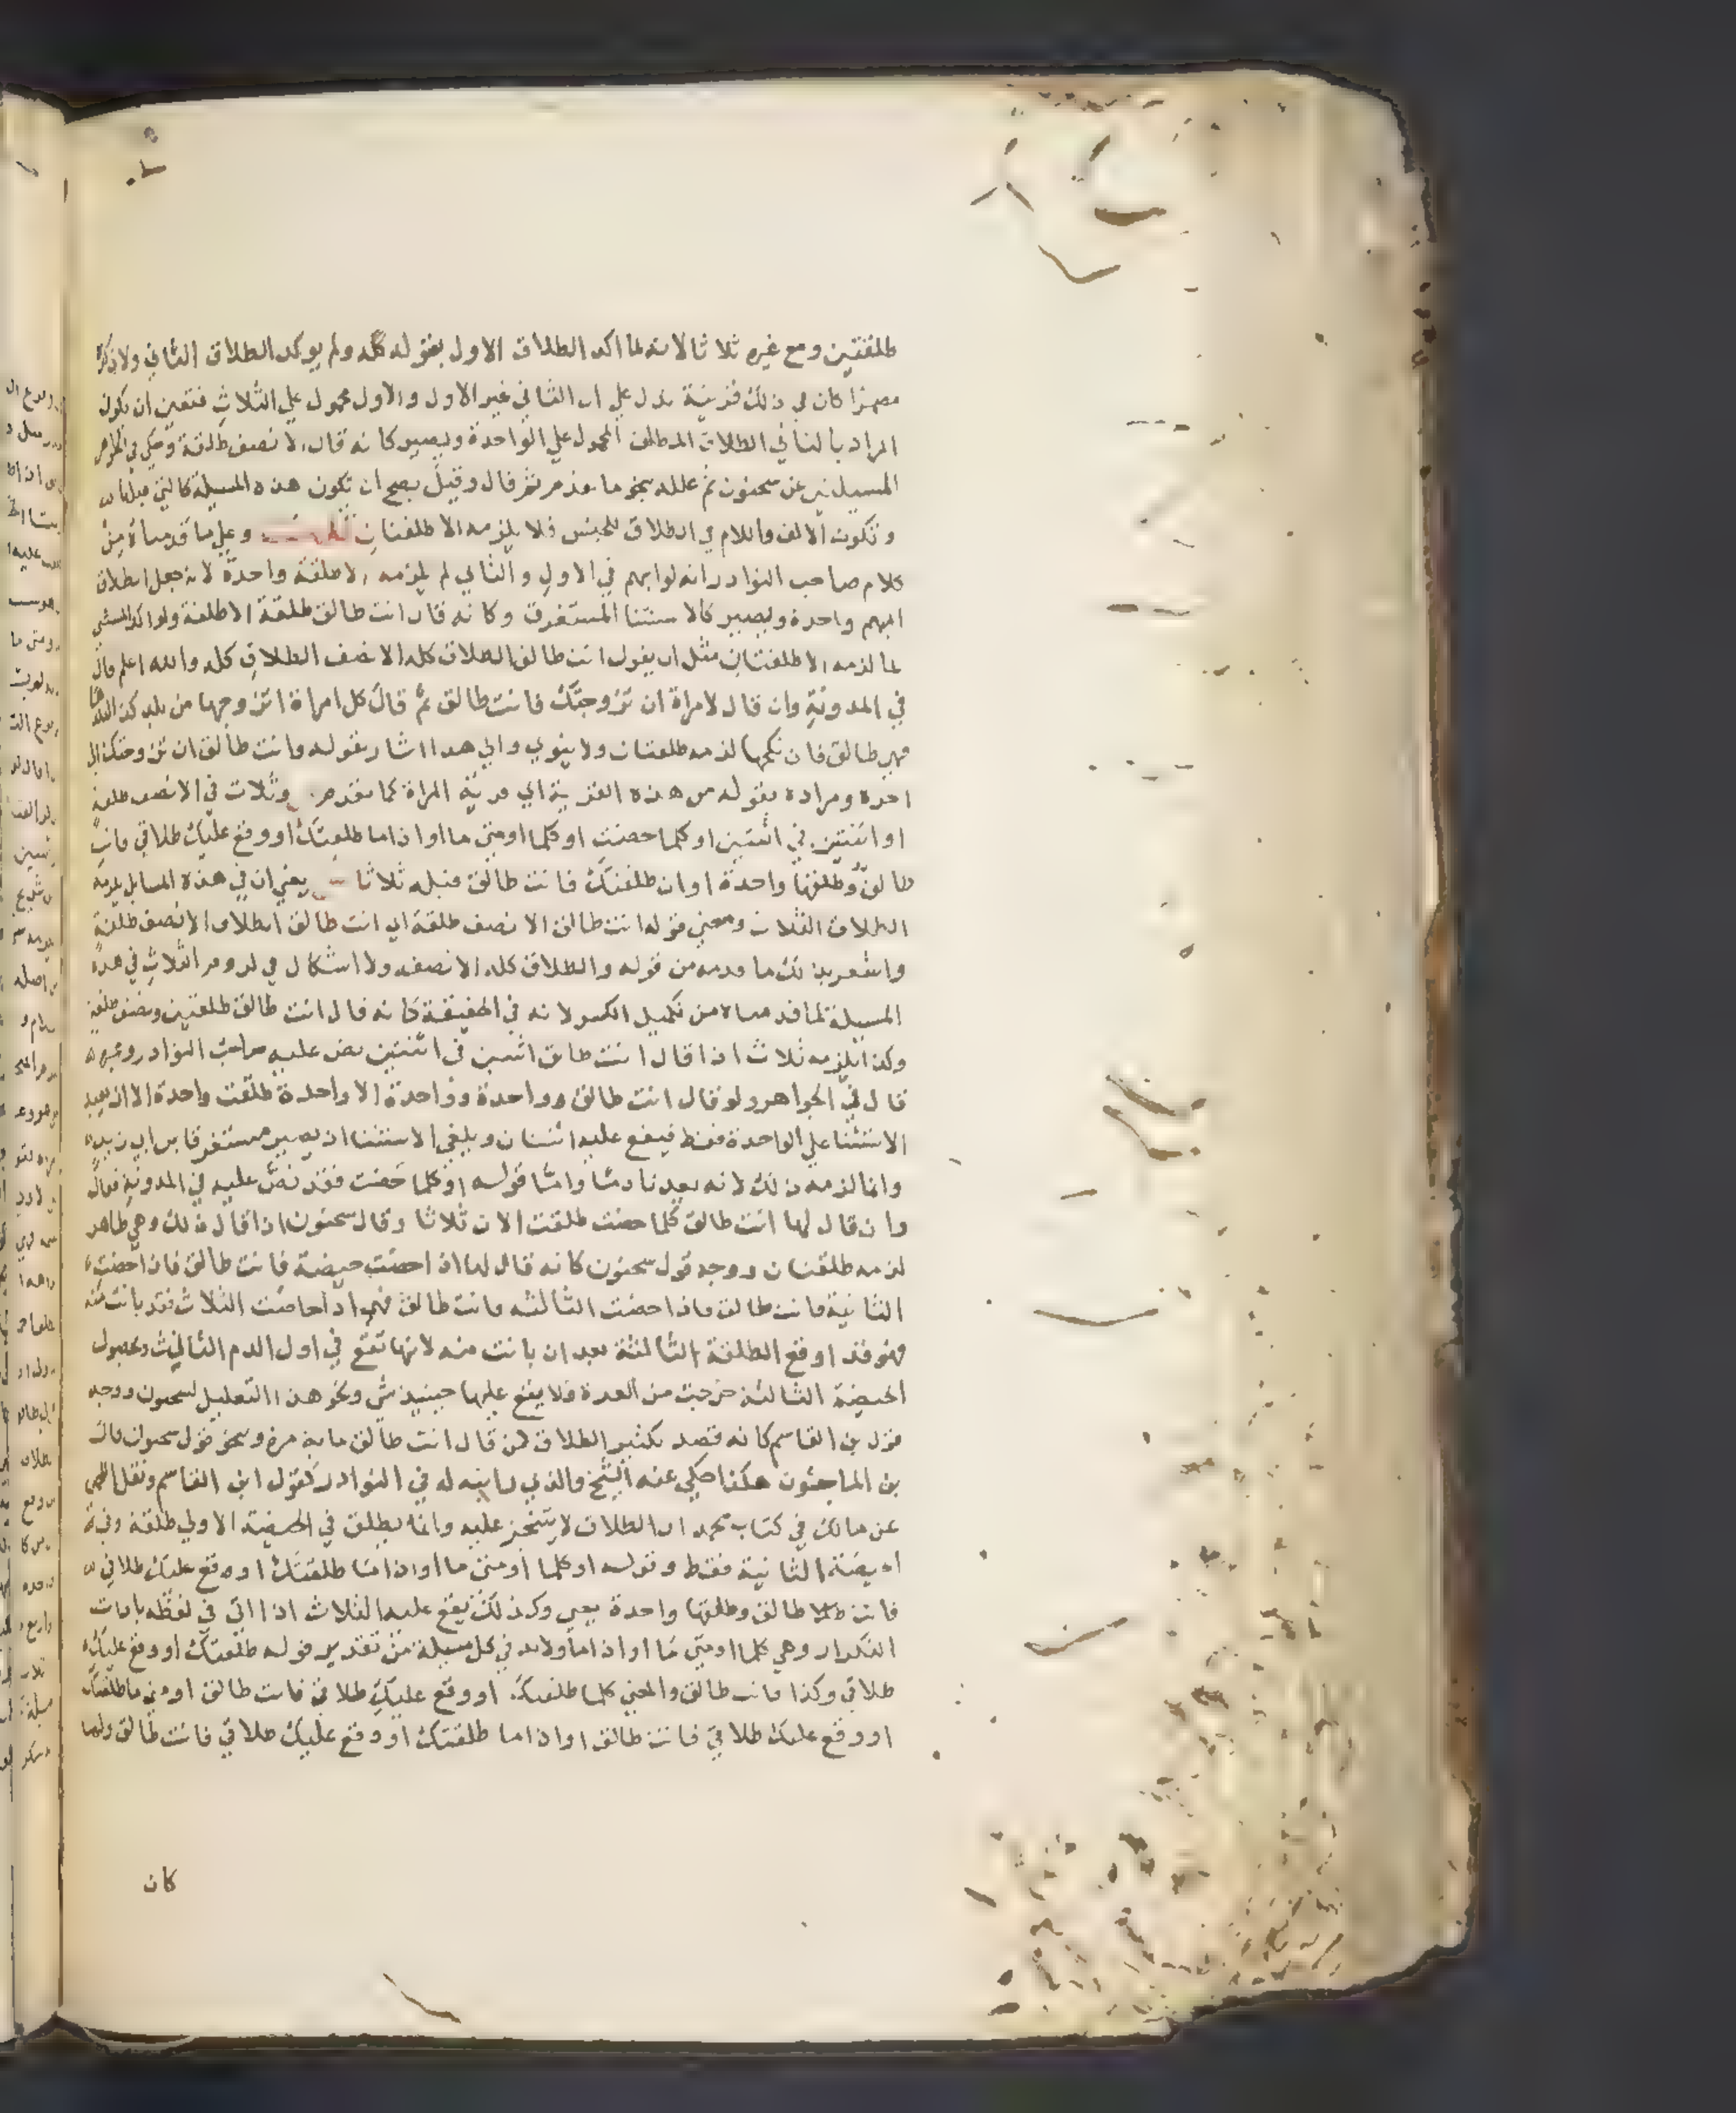 طلقتين ومع غيره ثلاثا لانه لما اكد الطلاق الاول بقوله كله ولم يوكد الطلاق الثاني ولا ذكر
كان في ذلك قرينة تدل علي ان الثاني غير الاول والاول محمول علي الثلاث فتعين ان يكون
المراد بالثاني الطلاق المطلق المحمول علي الواحدة ويصير كانه قال الا نصف طلقة وحكي في الجواهر
المسيلتين عن سحنون ثم علله بنحو ما تقدم ثم قال وقيل يصح ان تكون هذه المسيلة كالتي قبلها
وتكون الالف واللام في الطلاق للجنس فلا يلزمه الا طلقتان وعلي ما قدمناه من
كلام صاحب النوادر انه لو ابهم في الاول والثاني لم يلزمه الا طلقة واحدة لانه جعل الطلاق
المبهم واحدة ويصير كالاستثنا المستغرق وكانه قال انت طالق طلقة الا طلقة ولو اكد المستثني
لما لزمه الا طلقتان مثل ان يقول انت طالق الطلاق كله الا نصف الطلاق كله والله اعلم قال
في المدونة وان قال لامراة ان تزوجتك فانت طالق ثم قال كل امراة اتزوجها من بلد كذا
فهي طالق فان نكحها لزمه طلقتان ولا ينوي والي هذا اشار بقوله وانت طالق ان تزوجتك الي
اخره ومراده بقوله من هذه القرية اي قرية المراة كما تقدم وثلاث في الا نصف طلقة
او اثنتين في اثنتين او كلما حضت او كلما او متي ما او اذا ما طلقتك او وقع عليك طلاقي فانت
طالق وطلقها واحدة او ان طلقتك فانت طالق قبله ثلاثا يعني ان في هذه المسايل يلزمه
الطلاق الثلاث ومعني قوله انت طالق الا نصف طلقة اي انت طالق الطلاق الا نصف طلقة
واشعر بذلك ما قدمه من قوله والطلاق كله الا نصفه ولا اشكال في لزوم الثلاث في هذه
المسيلة لما قدمناه من تكميل الكسر لانه في الحقيقة كانه قال انت طالق طلقتين ونصف طلقة
وكذا يلزمه ثلاث اذا قال انت طالق اثنتين في اثنتين نص عليه صاحب النوادر وغيره
قال في الجواهر ولو قال انت طالق وواحدة وواحدة الا واحدة طلقت واحدة الا ان يعيد
الاستثنا علي الواحدة فقط فيقع عليه اثنتان ويلغي الاستثنا اذ يصير مستغرقا بن ابي زيد
وانما لزمه ذلك لانه يعد نادما واما قوله او كلما حضت فقد نص عليه في المدونة فقال
وان قال لها انت طالق كلما حضت طلقت الان ثلاثا وقال سحنون اذا قال ذلك وهي طاهر
لزمه طلقتان ووجه قول سحنون كانه قال لها اذا حضت حيضة فانت طالق فاذا حضت
الثانية فانت طالق فاذا حضت الثالثة فانت طالق فهي اذا حاضت الثلاث فقد بانت منه
فهو قد اوقع الطلقة الثالثة بعد ان بانت منه لانها تقع في اول الدم الثالث وبحصول
الحيضة الثالثة خرجت من العدة فلا يقع عليها حينيذ شي ونحو هذا التعليل لسحنون ووجه
قول بن القاسم كانه قصد تكثير الطلاق كمن قال انت طالق ماية مرة وبنحو قول سحنون قال
بن الماجشون هكذا حكي عنه الشيخ والذي رايته له في النوادر كقول ابن القاسم ونقل اللخمي
عن مالك في كتاب محمد ان الطلاق لا يتنجز عليه وانه يطلق في الحيضة الاولي طلقة وفي
الحيضة الثانية فقط وقوله او كلما او متي ما او اذا ما طلقتك او وقع عليك طلاقي
فانت طالق وطلقها واحدة يعني وكذلك يقع عليه الثلاث اذا اتي في لفظه بادات
التكرار وهي كلما او متي ما او اذا ما ولابد في كل مسيلة من تقدير قوله طلقتك او وقع عليك
طلاقي وكذا فانت طالق والمعني كلما طلقتك او وقع عليك طلاقي فانت طالق او متي ما طلقتك
او وقع عليك طلاقي فانت طالق او اذا ما طلقتك او وقع عليك طلاقي فانت طالق ولما
كان